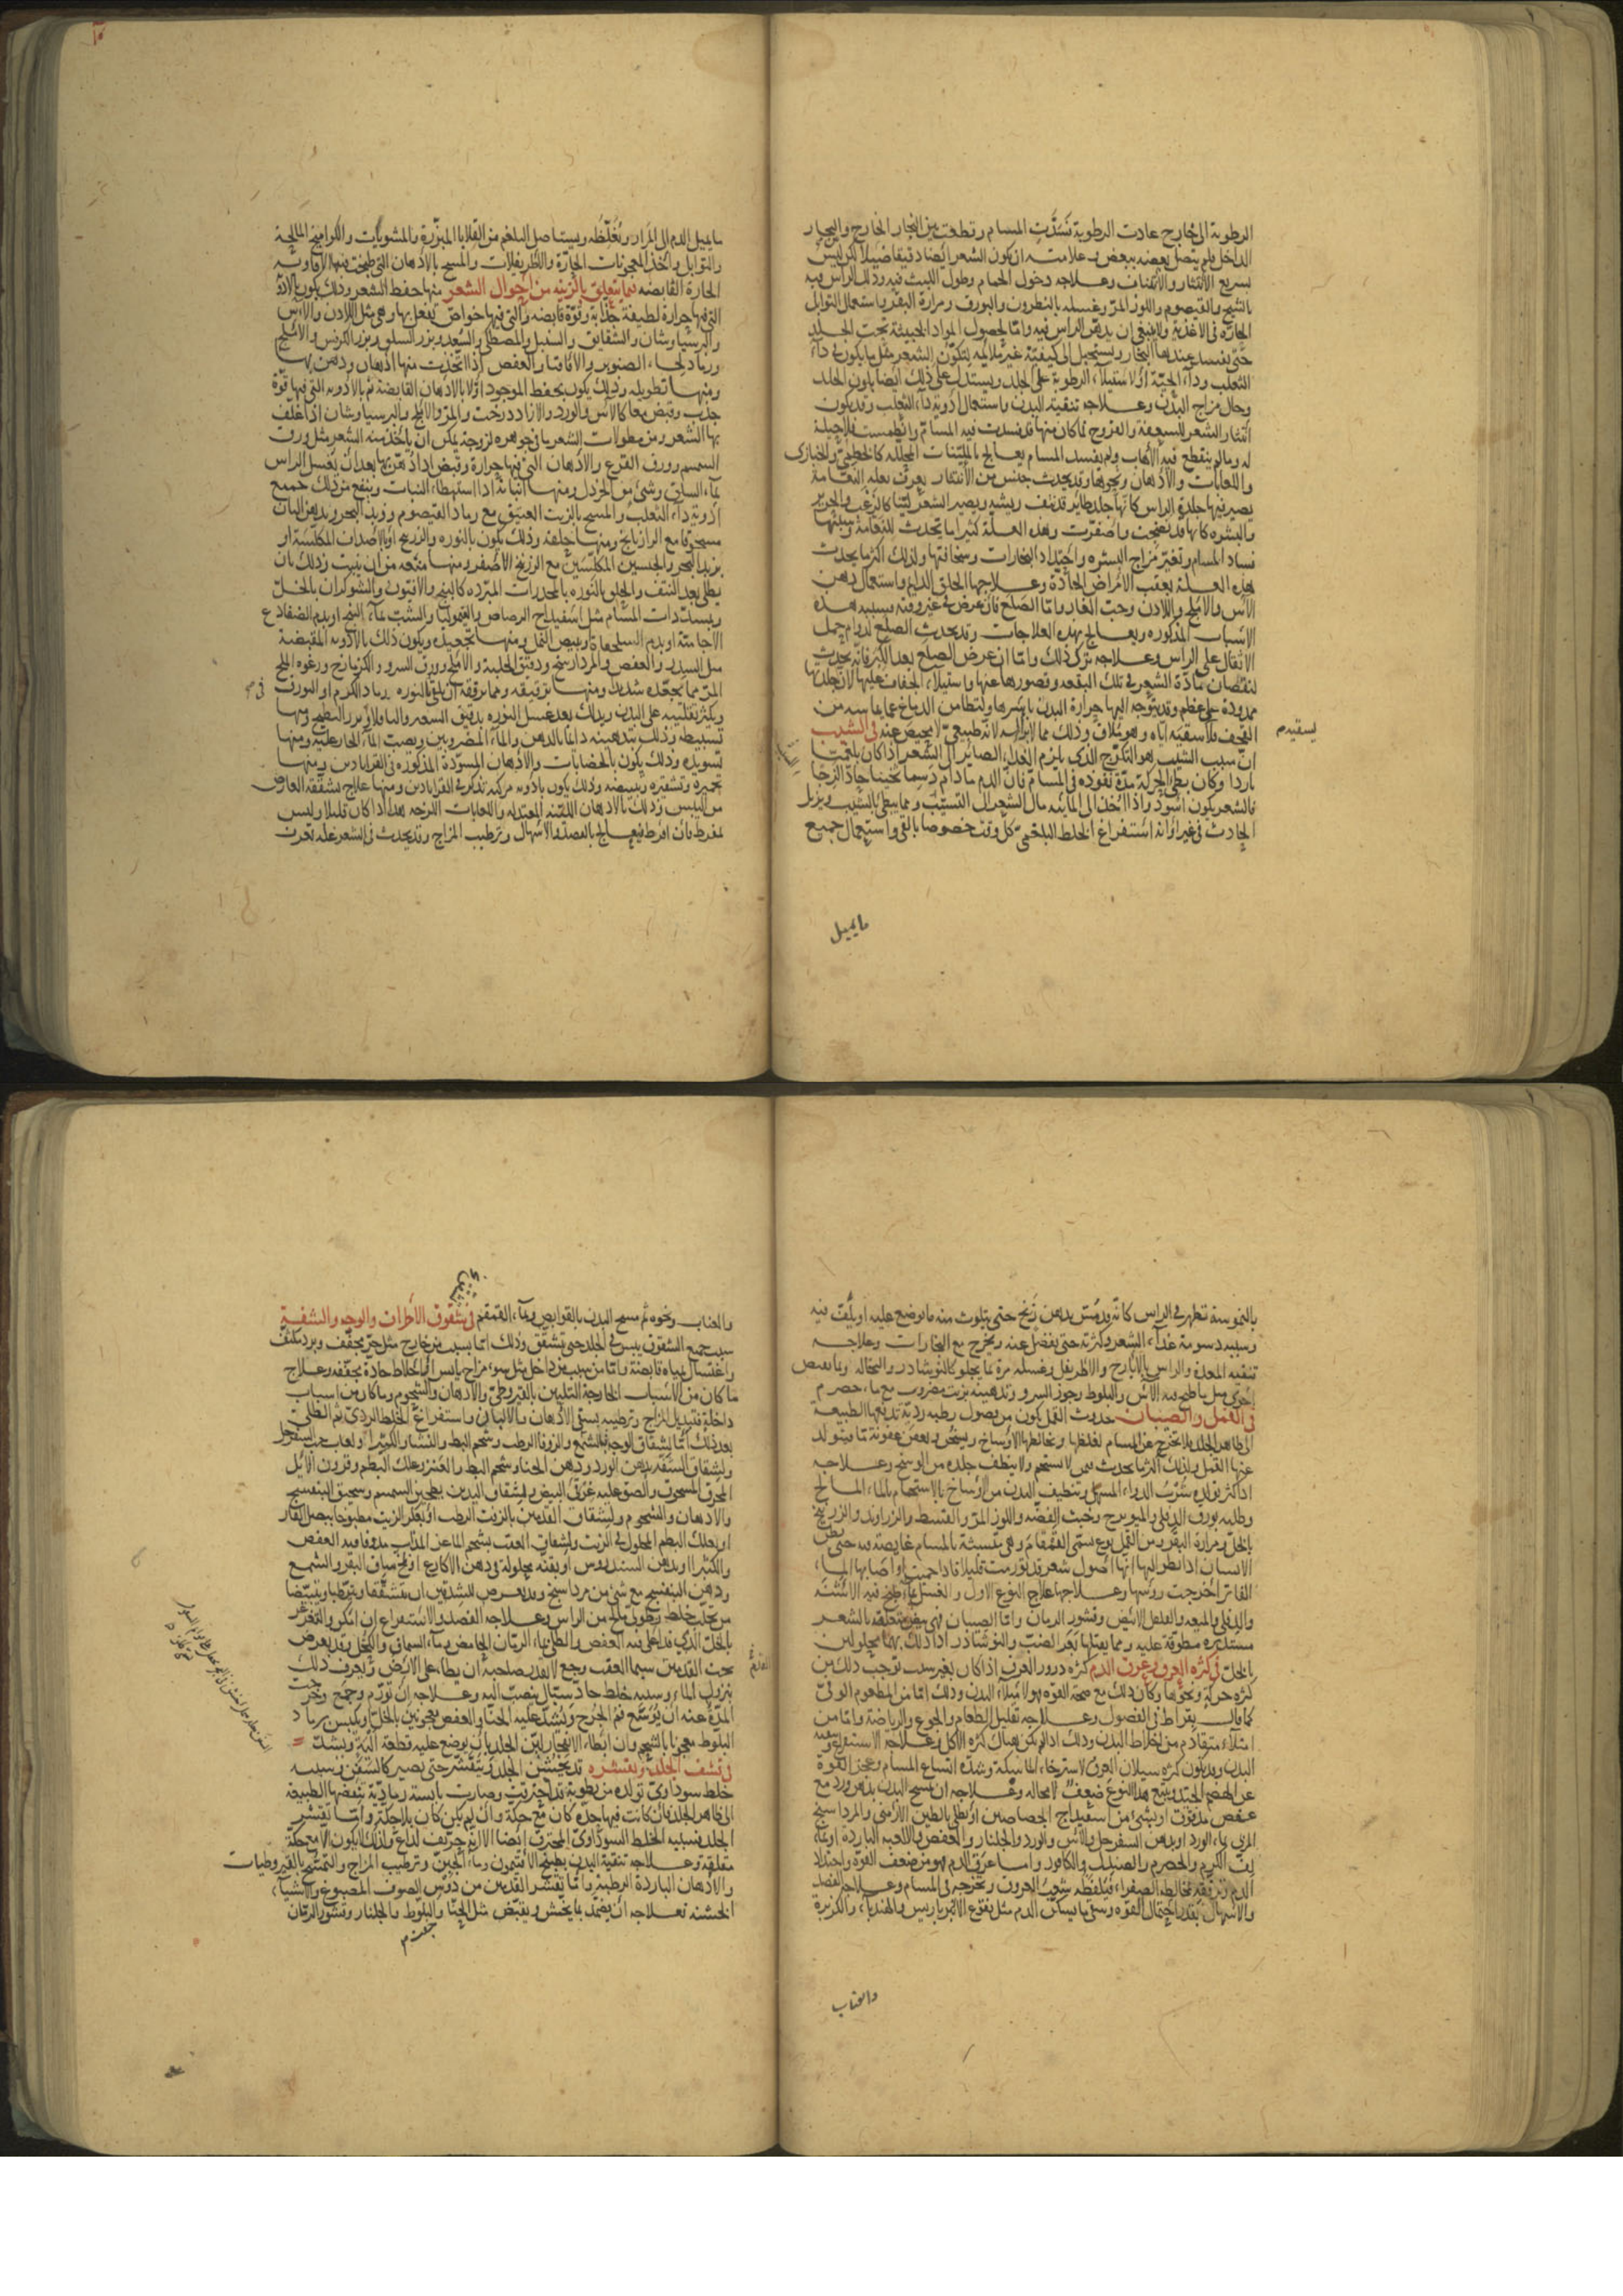 الرطوبة الى خارج عادت الرطوبة فسدّت المسام وقطعت بين البخار الخارج والبخار
الداخل فلم يتصل بعضه ببعض وعلامته ان يكون الشعر ايضا دقيقا ضئيلا لكن ليس
بسريع الانتثار والانتتاف وعلاجه دخول الحمام وطول اللبث فيه ودلك الراس فيه
بالشيح والقيصوم واللوز المرّ وغسله بالنطرون والبورق ومرارة البقر باستعمال التوابل
الحارّة فى الاغذية ولا ينبغى ان يدهن الراس فيه وامّا لحصول المواد الخبيثة تحت الجلد
حتّى يفسد عندها البخار ويستحيل الى كيفيّة غير ملائمه لتكوّن الشعر مثل ما يكون فى دآء
الثعلب ودآء الحيّة او لاستيلآء الرطوبة على الجلد ويستدلّ على ذلك ايضا بلون الجلد
وحال مزاج البدن وعلاجه تنقية البدن باستعمال ادوية دآء الثعلب وقد يكون
انتثار الشعر للسعفة والقروح فما كان منها قد فسدت فيه المسام وانطمست فلا حيلة
له وما لم ينقطع فيه الاهاب ولم يفسد المسام يعالج بالمليّنات المحلّله كالخطمىّ والخبازى
واللعابات والادهان ونحوها وقد يحدث جنس من الانتثار يعرف بعله النعامة
يصير فيها جلدة الراس كانها جلد طائر قد نتف ريشه ويصير الشعر ليّنا كالزغب والحرير
والبشره كانها قد نضجت واصفرّت وهذه العلّة كثيرا ما يحدث للنعامة وسببها
فساد المسام وتغيّر مزاج البشره واحتداد البخارات وسخافتها ولذلك اكثر ما يحدث
هذه العلة بعقب الامراض الحادّة وعلاجها الحلق الدايم واستعمال دهن
الآس والاملج واللادن وحبّ الغار وامّا الصلع فان عرض فى غير وقته فسببه هذه
الاسباب المذكوره ويعالج بهذه العلاجات وقد يحدث الصلع لدوام حمل
الاثقال على الراس وعلاجه ترك ذلك وامّا ان عرض الصلع بعد الكبر فانه يحدث
لنقصان مادّة الشعر فى تلك البقعه وقصورها عنها واستيلآء الجفاف عليها لان جلدتها
ممدودة على عظم وقد يتوجّه اليها حرارة البدن باسرها ولتطامن الدماغ عمّا يماسه من
القحف فلا سقيه ايّاه وهو ملاق وذلك مما لا برا له لانه طبيعىّ لا محيص عنه فى الشيب
انّ سبب الشيب هو التكرّج الذى يلزم الغذاء الصاير الى الشعر اذا كان بلغميّا
باردا وكان بطى الحركة مدّة نفوذه فى المسام فانّ الدم ما دام دسما ثخينا حارّا لزجا
فالشعر يكون اسود واذا اخذ الى المائيه مال الشعر الى التشيّب ومما يبطى بالشيب ويزيل
الحادث فى غير اوانه استفراغ الخلط البلغمىّ كل وقت خصوصا بالقى واستعمال جميع
يسقيه م
مايميل
مايميل الدم الى المرار ويغلّظه ويستاصل البلغم من القلايا المبزّرة والمشويّات والكواميخ المالحة
والتوابل واخذ المعجونات الحارّة والاطريفلات والمسح بالادهان التى طبخت فيها الافاويه
الحارة القابضه فيما يتعلق بالزينه من احوال الشعر منها حفظ الشعر وذلك يكون بالادوية
التى فيها حرارة لطيفة جذّابة وقوّة قابضه والتى فيها خواص يفعل بها وهى مثل اللادن والآس
والبرسياوشان والشقايق والسنبل والمصطكى والسعد وبزر السلق وبزر الكرفس والاملج
ورماد لحاء الصنوبر والاقاقيا والعفص اذا اتخذت منها ادهان ودهن بها
ومنها تطويله وذلك يكون بحفظ الموجود اوّلا بالادهان القابضة ثم بالادويه التى فيها قوّة
جذب وقبض معا كالآس والورد والازاددرخت والمرّ والاملج والبرسياوشان اذا غلّف
بها الشعر ومن مطولات الشعر ما فى جوهره لزوجة يمكن ان ياخذ منه الشعر مثل ورق
السمسم وورق القرع والادهان التى فيها حرارة وقبض اذا دهن بها بعد ان يغسل الراس
بمآء السلق وشئ من الخردل ومنها انباته اذا استبطاء النبات وينفع من ذلك جميع
ادوية دآء الثعلب والمسح بالزيت العتيق مع رماد القيصوم وزبد البحر وبدهن البان
مسحوقا مع الرازيانج ومنها حلقه وذلك يكون بالنوره والزرنيخ او بالاصداف المكلّسة او
بزبد البحر والجبسين المكلّسين مع الزرنيخ الاصفر ومنها منعه من ان ينبت وذلك بان
يطلى بعد النتف والحلق بالنوره بالمخدرات المبرّده كالبنج والافيون والشوكران بالخلّ
وبسدّدات المسام مثل اسفيداج الرصاص والقيموليا والشبّ بمآء البنج او بدم الضفادع
الآجامية او بدم السلحفاة وبيض النمل ومنها تجعيده ويكون ذلك بالادويه المقبضة
مثل السدر والعفص والمرداسنج ودقيق الحلبة والاملج وورق السرو والكزمازج ورغوه الملح
المرّ مما يجعّده شديدا ومنها ترقيقه ومما يرققه ان يلقى فى النوره رماد الكرم او البورق
ويكثر تقليبه على البدن ويدلك بعد غسل النوره بدقيق الشعير والباقلا وبزر البطيخ ومنها
تسبيطه وذلك بتدهينه دائما بالدهن والمآء المضروبين وبصبّ المآء الحار عليه ومنها
تسويده وذلك يكون بالخضابات والادهان المسوّدة المذكوره فى القراباذين ومنها
تحميره وتشقيره وتبييضه وذلك يكون بادويه مركبه تذكر فى القراباذين ومنها علاج تشقّقه العارض
من اليبس وذلك بالادهان الليّنة المعتدله واللعابات اللزجه هذا اذا كان قليلا وليس
بمفرط فان افرط فيعالج بالفصد والاسهال وترطيب المزاج وقد يحدث فى الشعر علّه تعرف
فى م
بالنموسة تظهر فى الراس كانّه قد مسّ بدهن زنخ حتى يتلوث منه ما يوضع عليه او يلفّ فيه
وسببه دسومة غذآء الشعر وكثرته حتى يفضل عنه ويخرج مع البخارات وعلاجه
تنقيه المعدة والراس بالايارج والاطريفل وغسله مرة بما يجلو كالنوشادر والنخاله وبما يقبض
اخرى مثل ما طبخ فيه الآس والبلوط وجوز السرو وتدهينه بزيت مضروب مع ماء حصرم
فى القمل والصيبان حدوث القمل يكون من فصول رطبه رديّة تدفعها الطبيعة
الى ظاهر الجلد فلا تخرج عن المسام لغلظها وتخالطها الاوساخ ويسخن ويعفن عفونة ما فيتولد
عنها القمل ولذلك اكثر ما يحدث بمن لا يستحم ولا ينظف جلده من الوسخ وعلاجه
اذا كثر تولده شرب الدواء المسهل وتنظيف البدن من الاوساخ بالاستحمام بالماء المالح
وطليه بورق الدفلى والميويزج وخبث الفضّه واللوز المرّ والقسط والزراوند والزرنيخ
بالخلّ ومرارة البقر ومن القمل نوع يسمّى القمقام وهى متشبثة بالمسام غايصة فيه حتى يظن
الانسان اذا نظر اليها انها اصول شعر قد تورّمت قليلا فاذا حميت او اصابها المآء
الفاتر اخرجت روسها وعلاجها علاج النوع الاول والغسل بماء طبخ فيه الاشنه
والدفلى والميعه والفلفل الابيض وقشور الرمان وامّا الصيبان فهى بيض متعلقه بالشعر
مستديره مطوقة عليه ومما يقتلها بعر الضبّ والنوشادر اذا دلك بهما محلولين
بالخلّ فى كثره العرق وعرق الدم كثره درور العرق اذا كان بغير سبب توجب ذلك من
كثره حركة ونحوها وكان ذلك مع صحة القوّه فهو لامتلآء البدن وذلك امّا من المطعوم الوقتىّ
كما قال بقراط فى الفصول وعلاجه تقليل الطعام والجوع والرياضة وامّا من
امتلآء متقادم من اخلاط البدن وذلك اذا لم يكن هناك كثره الاكل وعلاجه الاستفراغ وتنقيه
البدن وقد يكون كثره سيلان العرق لاسترخاء الماسكة وشدة اتساع المسام وعجز القوة
عن الهضم الجيّد ويتبع هذا النوع ضعف لا محاله وعلاجه ان يمسح البدن بدهن ورد مع
عفص مدقوق او بشئ من اسفيداج الجصاصين او يطلى بالطين الارمنى والمرداسنج
المربى بماء الورد او بدهن السفرجل والآس والورد والجلنار والعفص والالعبه الباردة او بماء
لفّ الكرم والحصرم والصندل والكافور وامّا عرق الدم فهو من ضعف القوّة واحتداد
الدم وترقّقه بمخالطه الصفراء فيلفظه شعب العروق وتخرجه فى المسام وعلاجه الفصد
والاسهال بقدر احتمال القوّه وسقى ما يسكن الدم مثل نقوع الامبرباريس والهندبا والكزبره
والعناب
والعناب ونحوه ثم مسح البدن بالقوابض وبمآء القمقم فى شقوق الاطراف والوجه والشفة
سبب جميع الشقوق يبس فى الجلد حتى يتشقّق وذلك امّا بسبب من خارج مثل حرّ مجفّف وبرد مكثف
واغتسال بمياه قابضة وامّا من سبب من داخل مثل سوء مزاج يابس او اخلاط حادة مجفّفه وعلاج
ما كان من الاسباب الخارجة التليين بالقيروطىّ والادهان والشحوم وما كان من اسباب
داخلة فتبديل المزاج وترطيبه بسقى الادهان والالبان واستفراغ الخلط الردى ثم الطلى
بعد ذلك امّا لشقاق الوجه فبالشمع والزوفا الرطب وشحم البط والنشا والكثيرا ولعاب حب السفرجل
ولشقاق الشفة بدهن الورد ودهن الحنا وشحم البط والعنز وعلك البطم وقرون الايّل
المحرق المسحوق والصق عليه غرقئ البيض ولشقاق اليدين بطحين السمسم وسحيق البنفسج
والادهان والشحوم ولشقاق القدمين بالزيت الرطب او بعكر الزيت مطبوخا ببصل الفار
او بعلك البطم المحلول فى الزيت ولشقاق العقب بشحم الماعز المذاب مدوفا فيه العفص
والكثيرا او بدهن السندروس او بقنّه محلولة فى دهن الاكارع او فى مخ ساق البقر والشمع
ودهن البنفسج مع شئ من مرداسنج وقد يعرض للشدقين ان يتشقّقا ويترطبا ويتبيّضا
من تحلّب خلط رطوبىّ مالح من الراس وعلاجه الفصد والاستفراع ان امكن والتغرغر
بالخلّ الذى قد اغلى فيه العفص والطلى بماء الرمّان الحامض وبمآء السماق والكحل وقد يعرض
تحت القدمين سيما العقب وجع لا يقدر صاحبه ان يطاء على الارض ويعرف ذلك
بنزول الماء وسببه خلط حادّ سيّال ينصبّ اليه وعلاجه ان تورّم وجمع وخرجت
المدّة عنه ان يوسّع فم الجرح ويشدّ عليه الحنّا والعفص معجونين بالخلّ ويكبس برماد
البلوط معجونا بالشحم وان ابطاء الانفجار ليّن الجلد بان يوضع عليه قطعة الية ويشدّ
فى تشف الجلد وتقشره قد يخشن الجلد ويتقشّر حتى يصير كالسّفن وسببه
خلط سوداوىّ تولّده من رطوبة قد احترقت وصارت يابسة رماديّة تنفضها الطبيعة
الى ظاهر الجلد فان كانت فيها حدّه كان مع حكّة وان لم يكن كان بلا حكّة وامّا تقشر
الجلد فسببه الخلط السوداوىّ المحترق ايضا الّا انّه حرّيف لذّاع ولذلك لا يكون الّا مع حكّة
مقلقة وعلاجه تنقية البدن بطبيخ الافتيمون ومآء الجبن وترطيب المزاج والتمسّح بالقيروطيات
والادهان الباردة الرطبة وامّا تقشر القدمين من دوس الصوف المصبوغ والاشيآء
الخشنه فعلاجه ان يضمّد بما يخشّن ويقبّض مثل الحنّا والبلوط والجلنار وقشور الرمّان